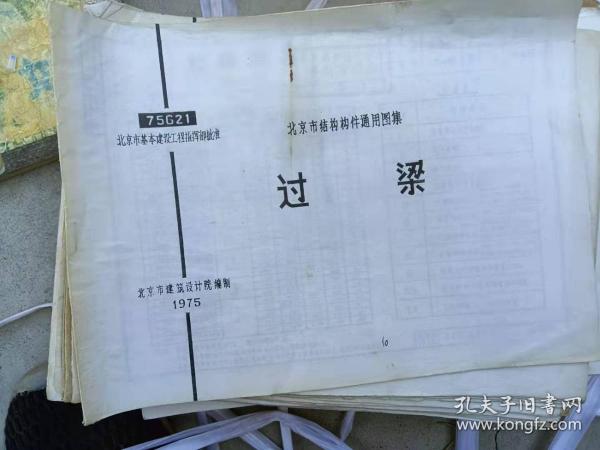 75G21
北京市基本建设工程指挥部批准
北京市结构构件通用图集
过梁
北京市建筑设计院编制
1975
10
孔夫子旧书网
www.kongfz.com